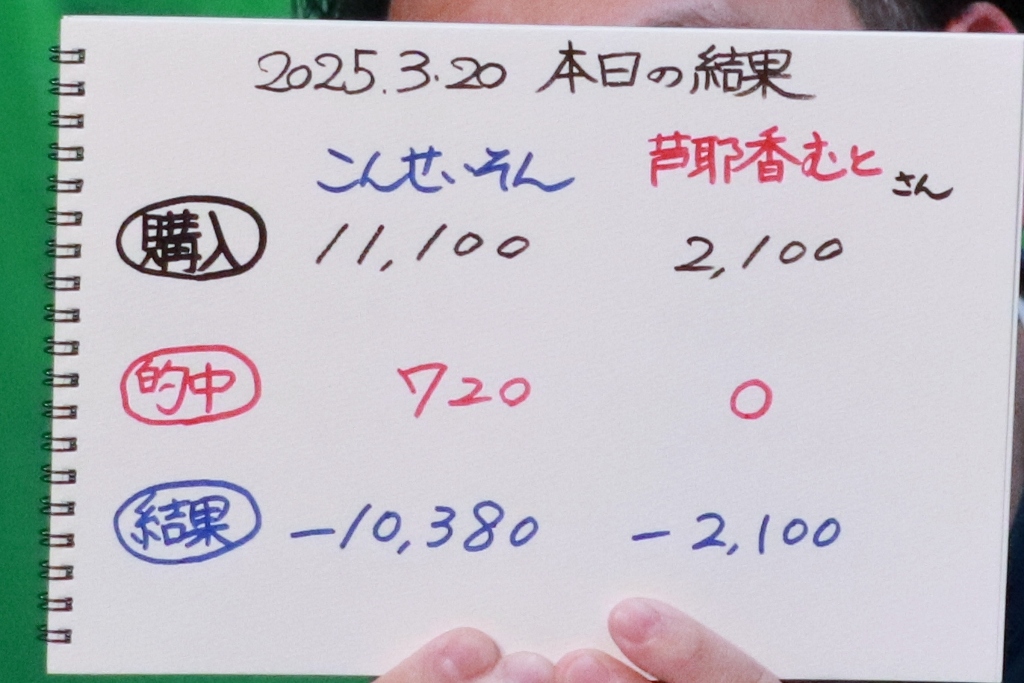 2025.3.20 本日の結果
こんせいそん 芦耶香むとさん
購入 11,100 2,100
的中 720 0
結果 -10,380 -2,100